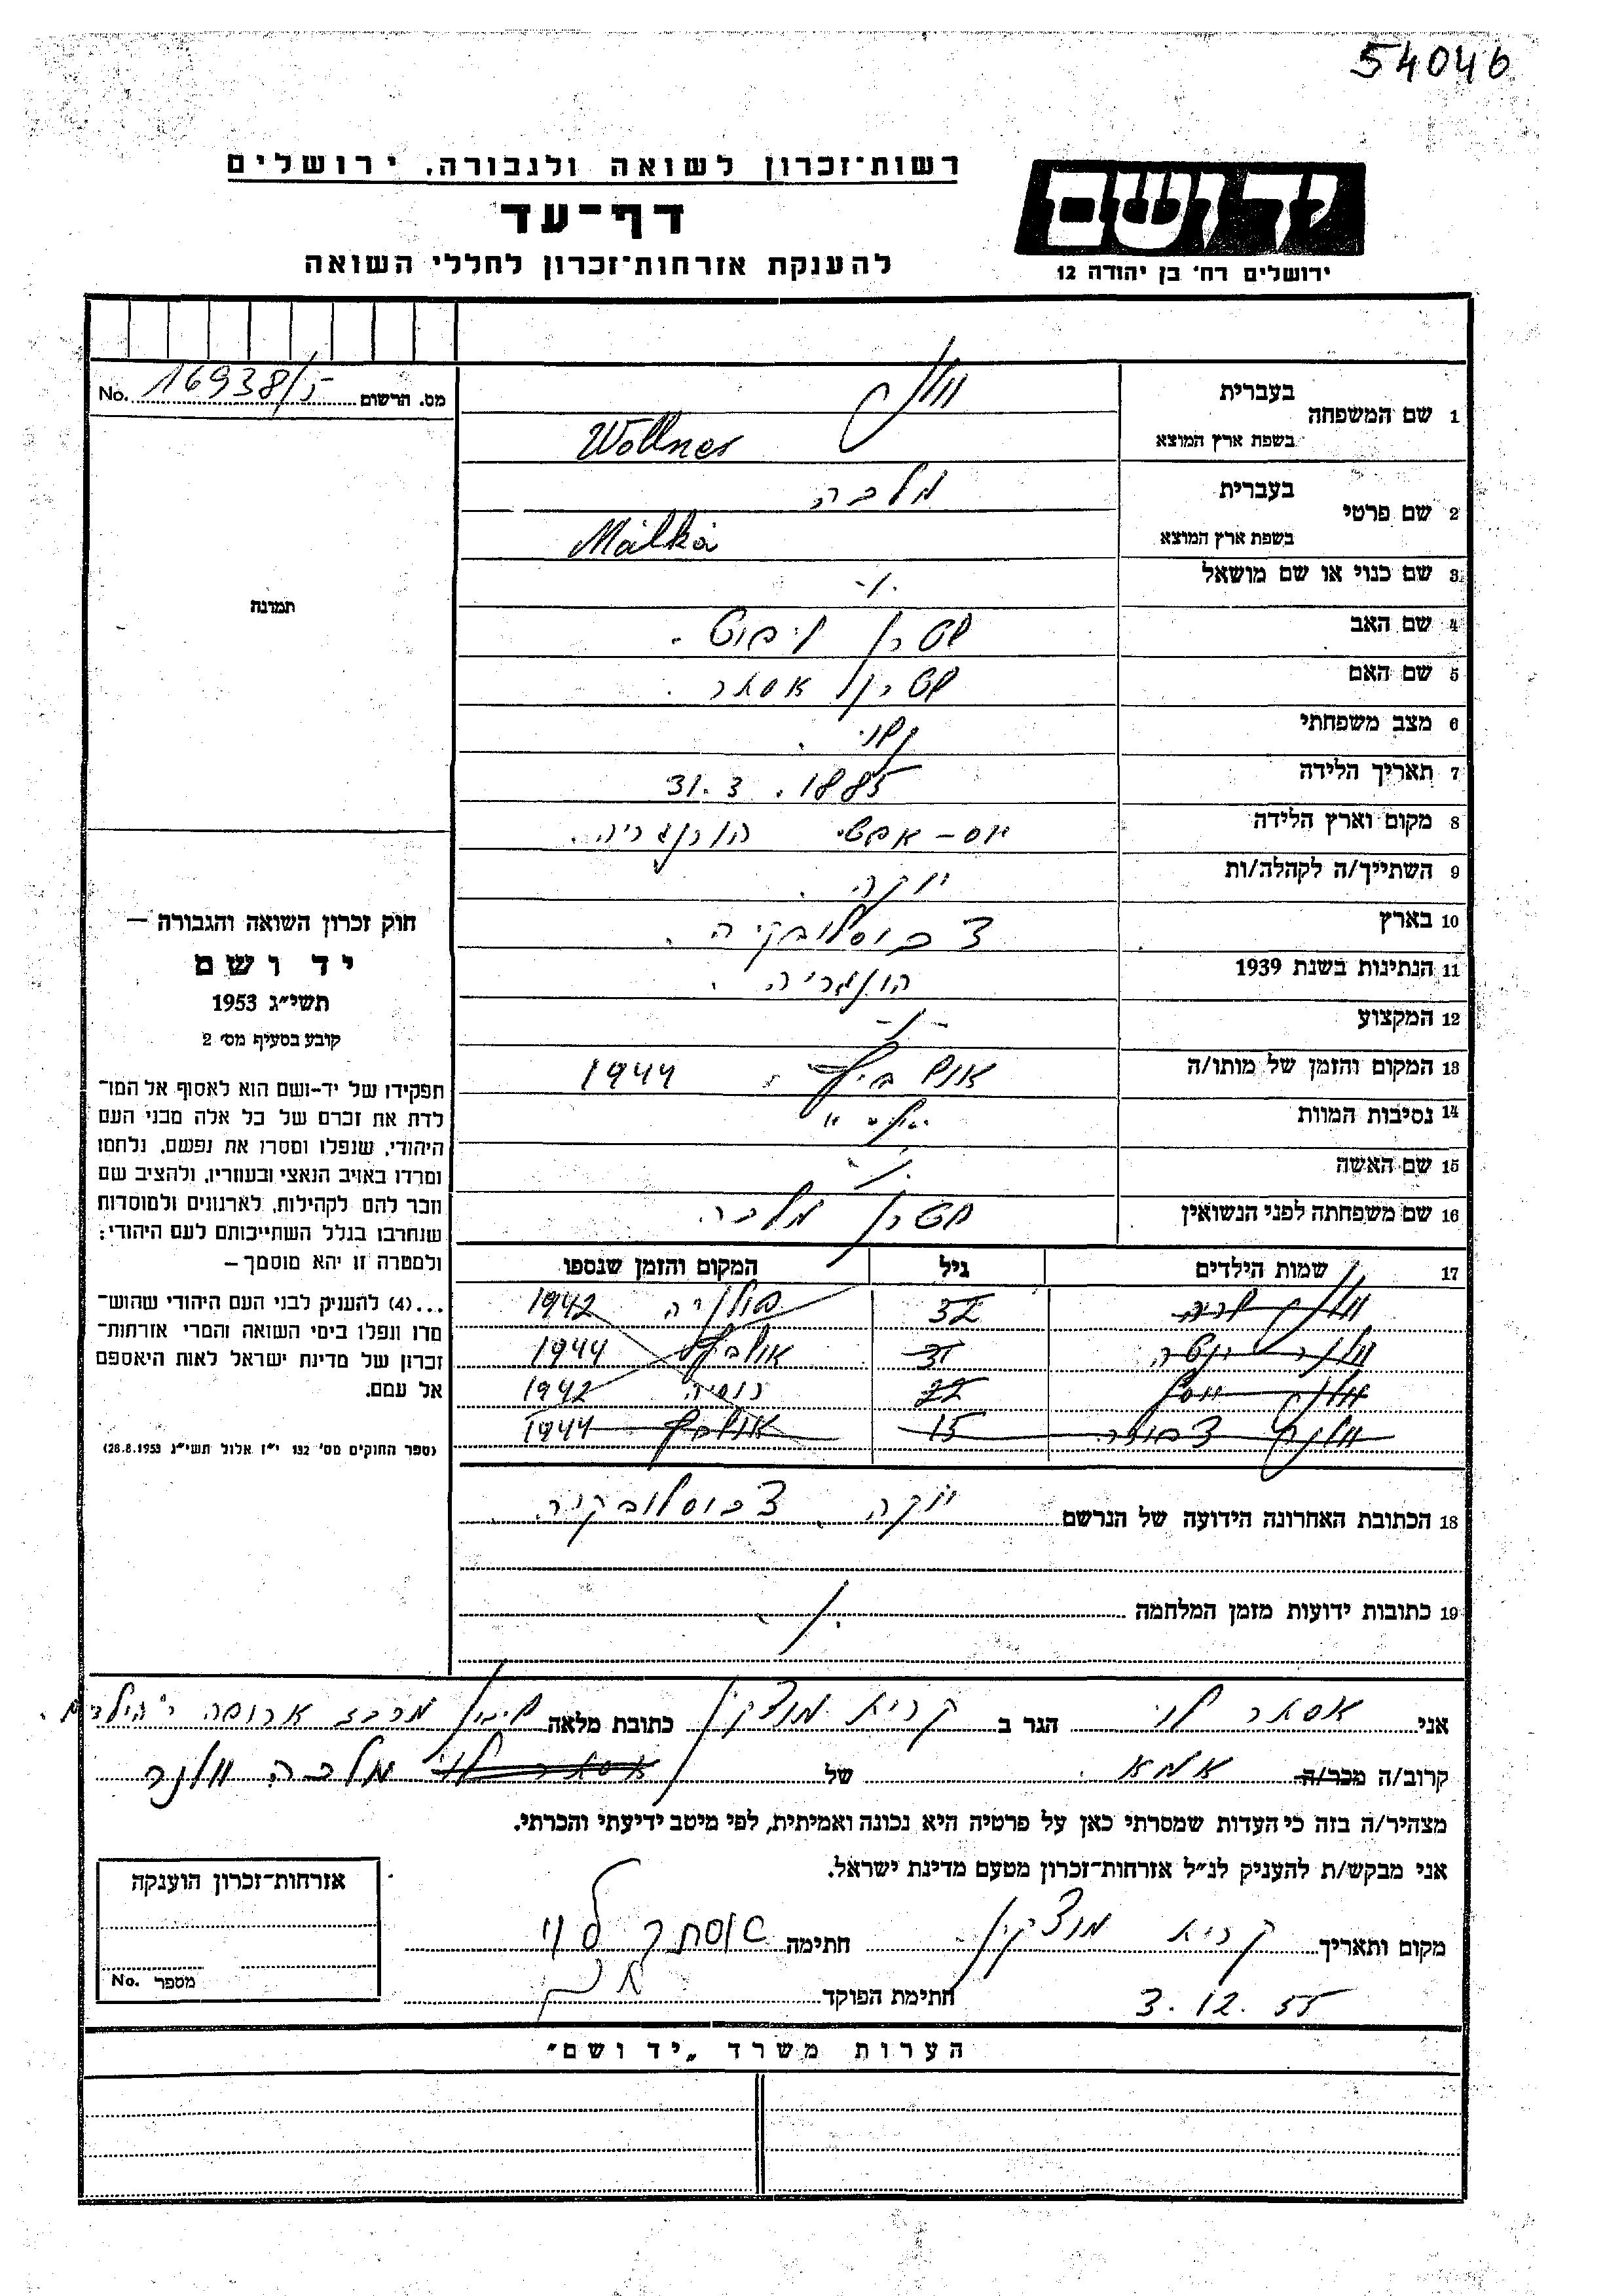 54046
רשות־זכרון לשואה ולגבורה, ירושלים
דף־עד
להענקת אזרחות־זכרון לחללי השואה
יד ושם
ירושלים רח' בן יהודה 12
No. 16938/5 מס. הרשום
תמונה
חוק זכרון השואה והגבורה —
יד ושם
תשי״ג 1953
קובע בסעיף מס׳ 2
תפקידו של יד-ושם הוא לאסוף אל המו־
לדת את זכרם של כל אלה מבני העם
היהודי, שנפלו ומסרו את נפשם, נלחמו
ומרדו באויב הנאצי ובעוזריו, ולהציב שם
וזכר להם לקהילות, לארגונים ולמוסדות
שנחרבו בגלל השתייכותם לעם היהודי;
ולמטרה זו יהא מוסמך —
...(4) להעניק לבני העם היהודי שהוש־
מדו ונפלו בימי השואה והמרי אזרחות־
זכרון של מדינת ישראל לאות היאספם
אל עמם.
(ספר החוקים מס׳ 132 י״ז אלול תשי״ג 28.8.1953)
1 שם המשפחה
בעברית
בשפת ארץ המוצא Wollner
2 שם פרטי
בעברית מלכה
בשפת ארץ המוצא Malka
3 שם כנוי או שם מושאל
4 שם האב שטרן ליבוש.
5 שם האם שטרן אסתר.
6 מצב משפחתי נשוי.
7 תאריך הלידה 31.3.1885
8 מקום וארץ הלידה הונגריה.
9 השתייך/ה לקהלה/ות
10 בארץ צכוסלובקיה.
11 הנתינות בשנת 1939 הונגריה.
12 המקצוע
13 המקום והזמן של מותו/ה 1944
14 נסיבות המוות
15 שם האשה
16 שם משפחתה לפני הנשואין שטרן מלכה
17 שמות הילדים גיל המקום והזמן שנספו
32 פולניה 1942
31 1944
22 רוסיה 1942
15 1944
18 הכתובת האחרונה הידועה של הנרשם צכוסלובקיה.
19 כתובות ידועות מזמן המלחמה
אני אסתר לוי הגר ב קרית מוצקין כתובת מלאה
קרוב/ה מכר/ה אמא. של אסתר לוי מלכה וולנר
מצהיר/ה בזה כי העדות שמסרתי כאן על פרטיה היא נכונה ואמיתית, לפי מיטב ידיעתי והכרתי.
אני מבקש/ת להעניק לנ״ל אזרחות־זכרון מטעם מדינת ישראל.
מקום ותאריך קרית מוצקין חתימה אסתר לוי
3.12.55 חתימת הפוקד
אזרחות־זכרון הוענקה
No. מספר
הערות משרד „יד ושם״